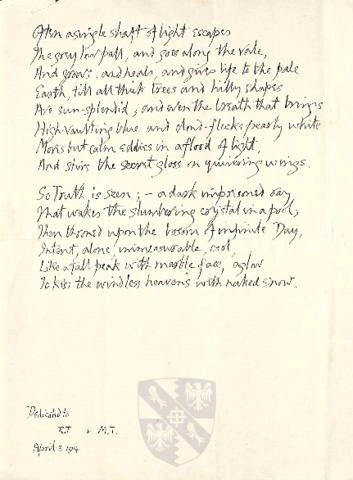 Often a single shaft of light escapes
The grey low pall, and goes along the vale,
And grows, and heals, and gives life to the pale
Earth, till all thick trees and hilly shapes
Are sun-splendid; and even the breath that brings
High-vaulting blue and cloud-flecks pearly white
Moves but calm eddies in a flood of light,
And stirs the secret gloss on quivering wings.
So Truth is seen; - a dark imprisoned ray
That wakes the slumbering crystal in a pool,
Then throned upon the bosom of infinite Day,
Intent, alone, immeasurable, cool,
Like a tall peak with marble face, aglow
To kiss the windless heavens with naked snow.
Dedicated to
R.T & M.T.
April 3